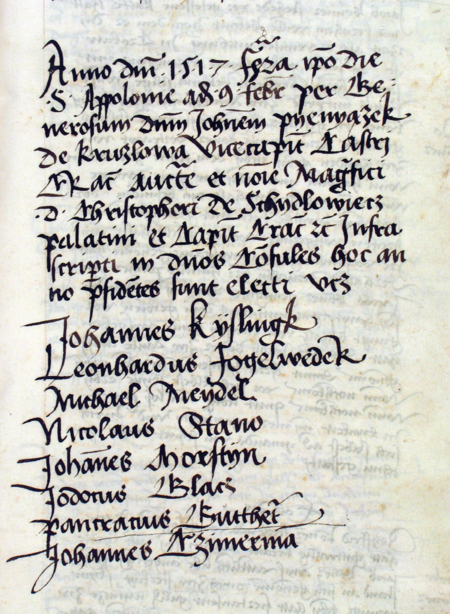 Anno dnī 1517 fer̄a ip̄o die
S. Appolonie ad 9 febr̄ per Ge-
nerosum dnm Johnem pyenyazek
de Kruzlowa Vicecapit̄ Castri
Crac̄ auct̄e et noīe Mag̅fici
d. Christopheri de Schydlowiecz
palatini et Capit̄ Crac̄ zc̄ Infra
scripti in dnōs Cōsules hoc an
no p̄sidētes sunt electi vcz
Johannes Kyslingk
Leonhardus Fogelwedek
Michael Meydel
Nicolaus Stano
Johan̄es Morstyn
Jodocus Glacz
pancracius Gutthet̄
Johannes Czimerma